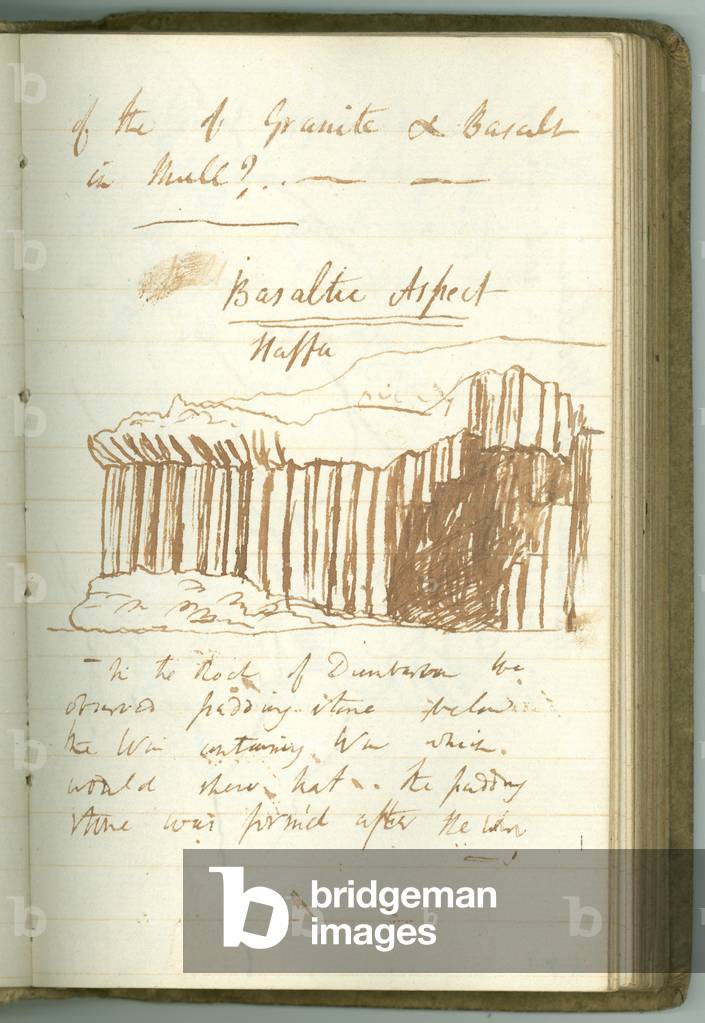 of the of Granite & Basalt
in Mull?..— —
Basaltic Aspect
Staffa
– In the Rock of Dunbarton we
observed pudding stone below
the Win containing Win which
would shew that the pudding
stone was formed after the Win
b bridgeman
images